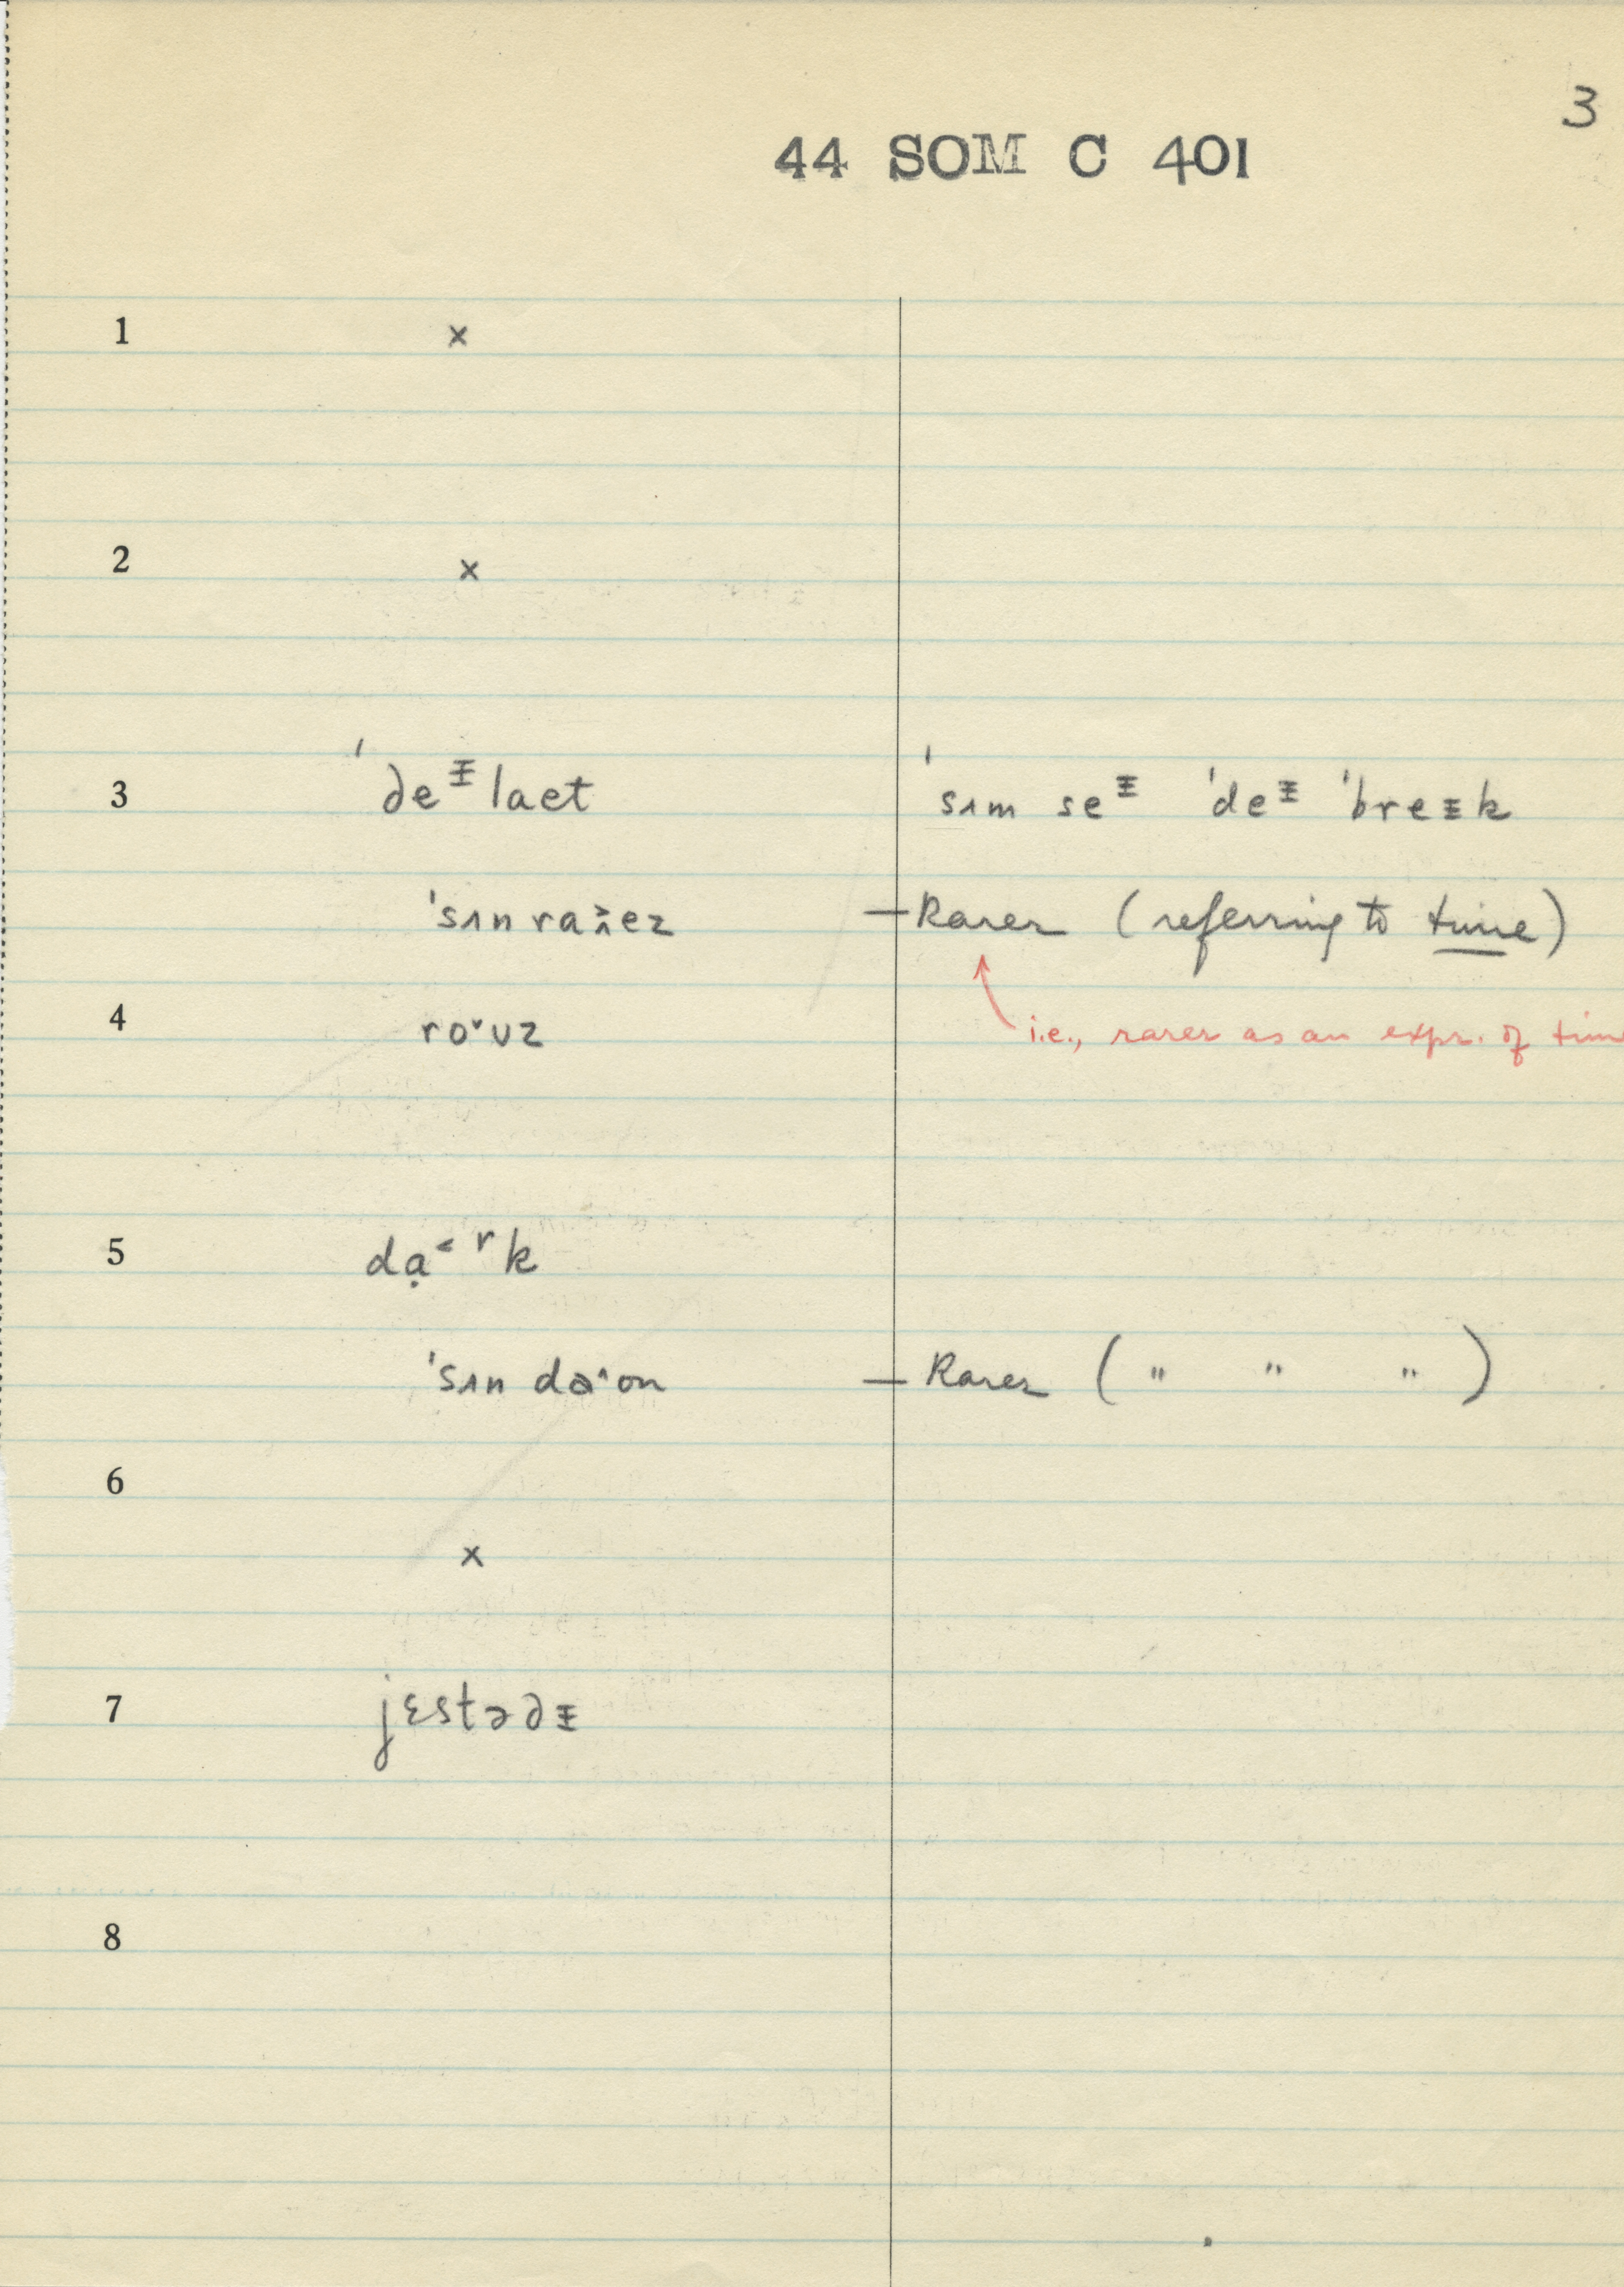 3
44 SOM C 401
1 ×
2 ×
3 ˈdeᵻlaet ˈsʌm seᵻ ˈdeᵻ ˈbreᵻk
ˈsʌn raɪez — Rarer (referring to time)
4 roˇuz i.e., rarer as an expr. of tim
5 dạ˂ʳk
ˈsʌn daˆon — Rarer ( " " " )
6
×
7 jɛstədᵻ
8